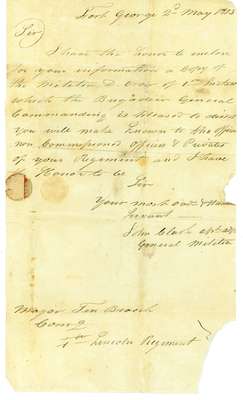 Fort George 2d May 1813
Sir
I have the honor to enclose
for your information a Copy of
the Militia G. Order of 1st Instant
which the Brigadier General
Commanding is pleased to desire
you will make Known to the Officers
non Commissioned Officers & Privates
of your Regiment and I have
Honor to be
Sir
Your most Obdt & Humble
Servant
John Clark
General Militia
Major Ten Broeck
Comg
1st Lincoln Regiment